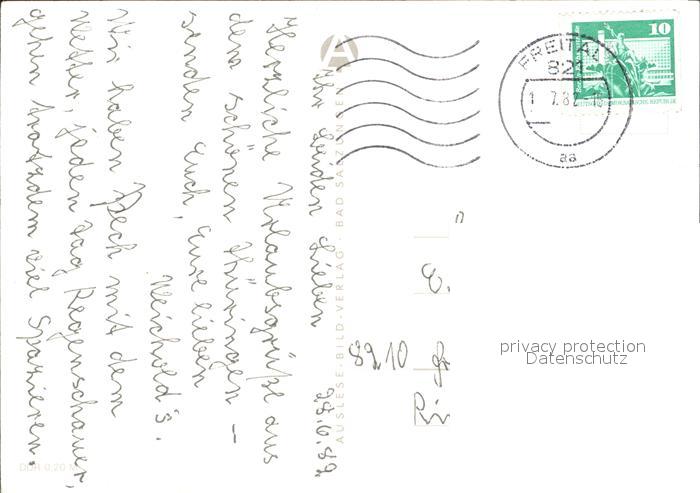 28.6.82
Ihr beiden Lieben
Herzliche Urlaubsgrüße aus
dem schönen Thüringen –
senden Euch, Eure lieben
Weichold's.
Wir haben Pech mit dem
Wetter, jeden Tag Regenschauer,
gehen trotzdem viel spazieren.
AUSLESE-BILD-VERLAG · BAD SALZUNGEN
DDR 0,20 M
FREITAL
821
1. 7. 82
aa
10
DEUTSCHE DEMOKRATISCHE REPUBLIK
E.
8210
privacy protection
Datenschutz